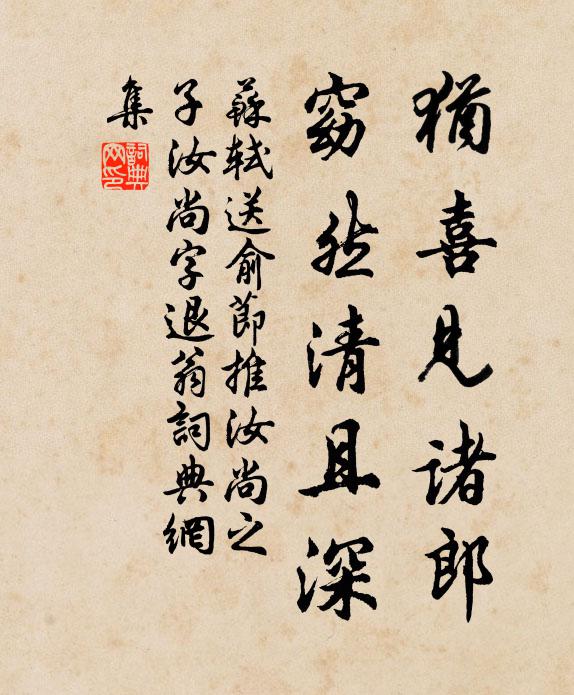 猶喜見諸郎
窈然清且深
蘇軾送俞節推汝尚之
子汝尚字退翁詞典網
集
詞典
网印